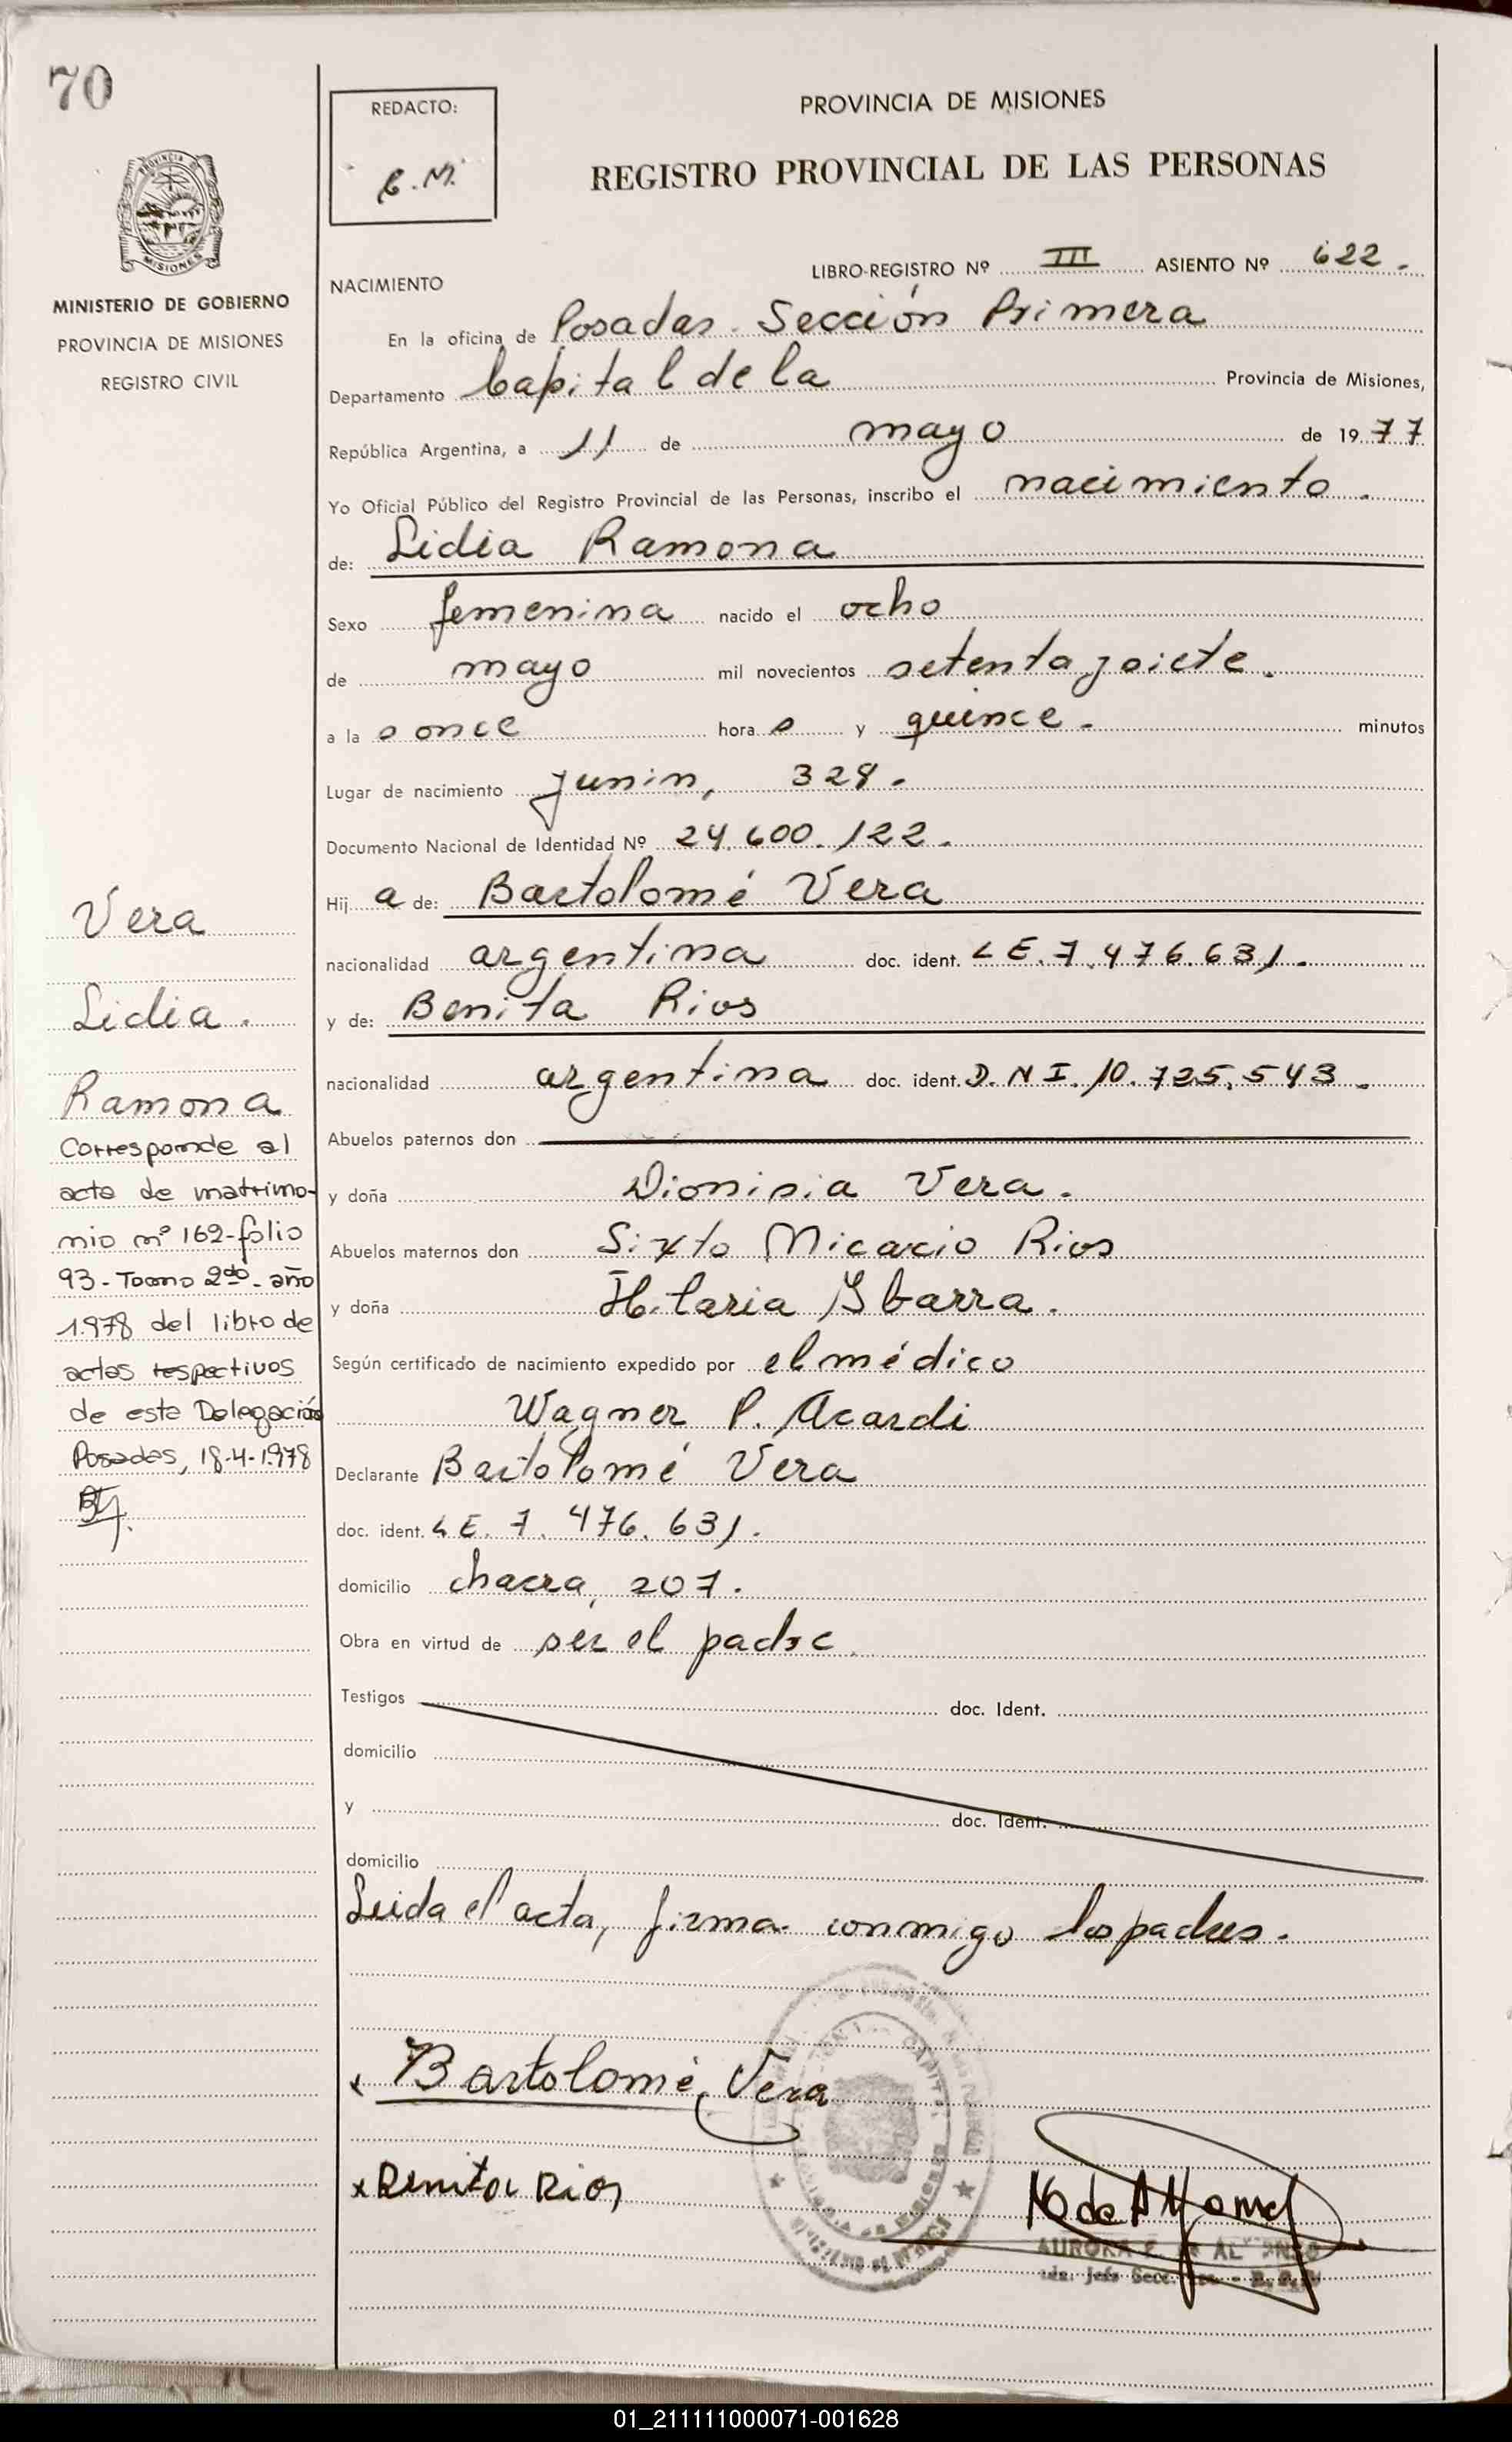 70
REDACTO:
C.M.
PROVINCIA DE MISIONES
REGISTRO PROVINCIAL DE LAS PERSONAS
PROVINCIA DE
MISIONES
MINISTERIO DE GOBIERNO
PROVINCIA DE MISIONES
REGISTRO CIVIL
NACIMIENTO
LIBRO-REGISTRO Nº III ASIENTO Nº 622.
En la oficina de Posadas. Sección Primera
Departamento Capital de la Provincia de Misiones,
República Argentina, a 11 de mayo de 1977
Yo Oficial Público del Registro Provincial de las Personas, inscribo el nacimiento.
de: Lidia Ramona
Sexo femenina nacido el ocho
de mayo mil novecientos setenta y siete.
a la s once hora s y quince. minutos
Lugar de nacimiento Junin, 328.
Documento Nacional de Identidad Nº 24.600.122.
Hij a de: Bartolomé Vera
nacionalidad argentina doc. ident. L E. 7.476.631.
y de: Benita Rios
nacionalidad argentina doc. ident. D. N I. 10.725.543.
Abuelos paternos don
y doña Dionisia Vera.
Abuelos maternos don Sixto Micacio Rios
y doña Hilaria Ybarra.
Según certificado de nacimiento expedido por el médico
Wagner P. Acardi
Declarante Bartolomé Vera
doc. ident. L E. 7. 476. 631.
domicilio chacra, 207.
Obra en virtud de ser el padre.
Testigos doc. Ident.
domicilio
y doc. Ident.
domicilio
Leida el acta, firma conmigo los padres.
x Bartolomé Vera
x Benita Rios
AURORA E. de ALFONSO
Vera
Lidia.
Ramona
Corresponde al
acta de matrimo-
nio nº 162-folio
93-Tomo 2do-año
1.978 del libro de
actas respectivos
de esta Delegación
Posadas, 18-4-1.978
01_211111000071-001628